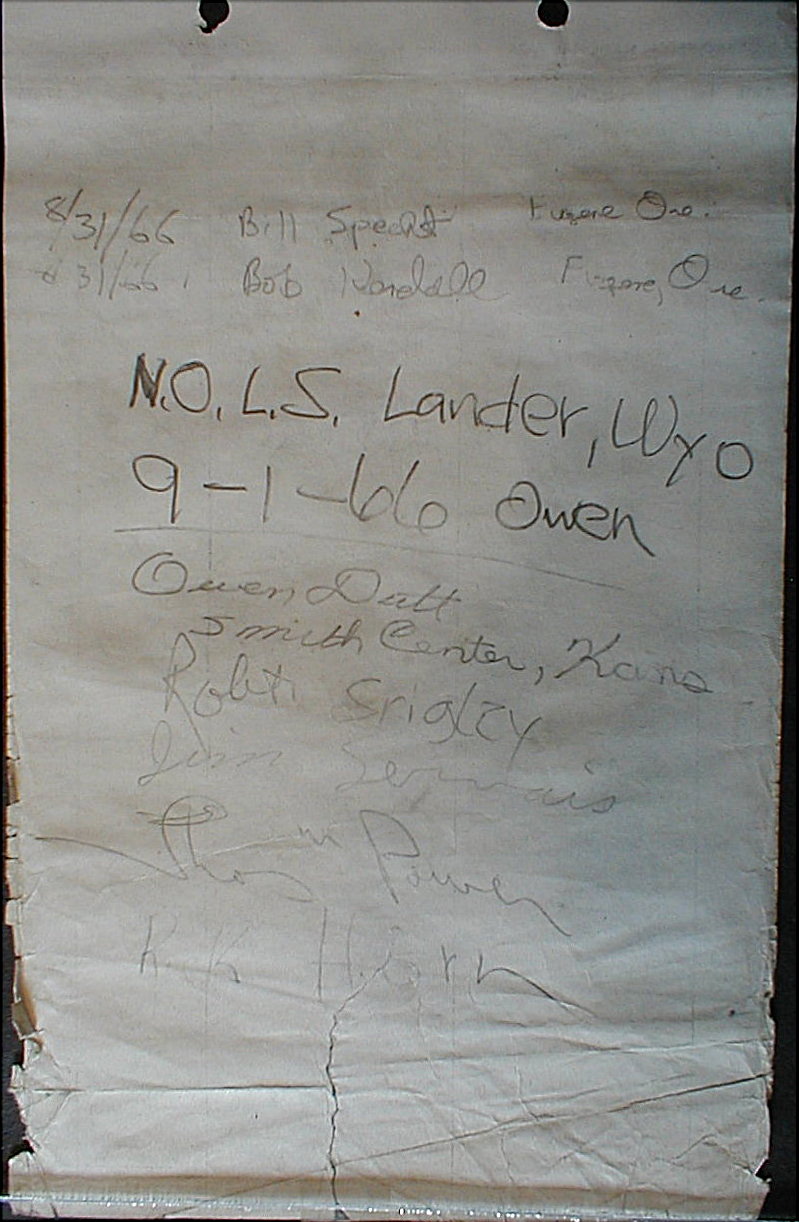 8/31/66 Bill Specht Eugene Ore.
8/31/66 Bob Eugene, Ore.
N.O.L.S. Lander, Wyo
9-1-66 Owen
Owen Datt
Smith Center, Kans
Robt Srigley
Jim Servais
Thos m Power
R.K. Horn